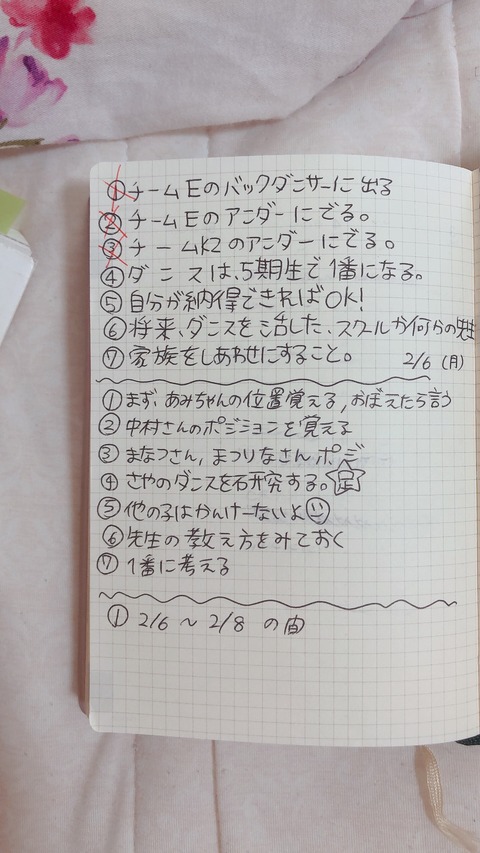 ①チームEのバックダンサーに出る
②チームEのアンダーにでる。
③チームK2のアンダーにでる。
④ダンスは、5期生で1番になる。
⑤自分が納得できればOK!
⑥将来、ダンスを活した、スクールか何らの先生
⑦家族をしあわせにすること。 2/6 (月)
①まず、あみちゃんの位置覚える,おぼえたら言う
②中村さんのポジションを覚える
③まなつさん,まつりなさんポジ
④さやのダンスを研究する。足
⑤他の子はかんけーないよ
⑥先生の教え方をみておく
⑦1番に考える
① 2/6 ~ 2/8 の間